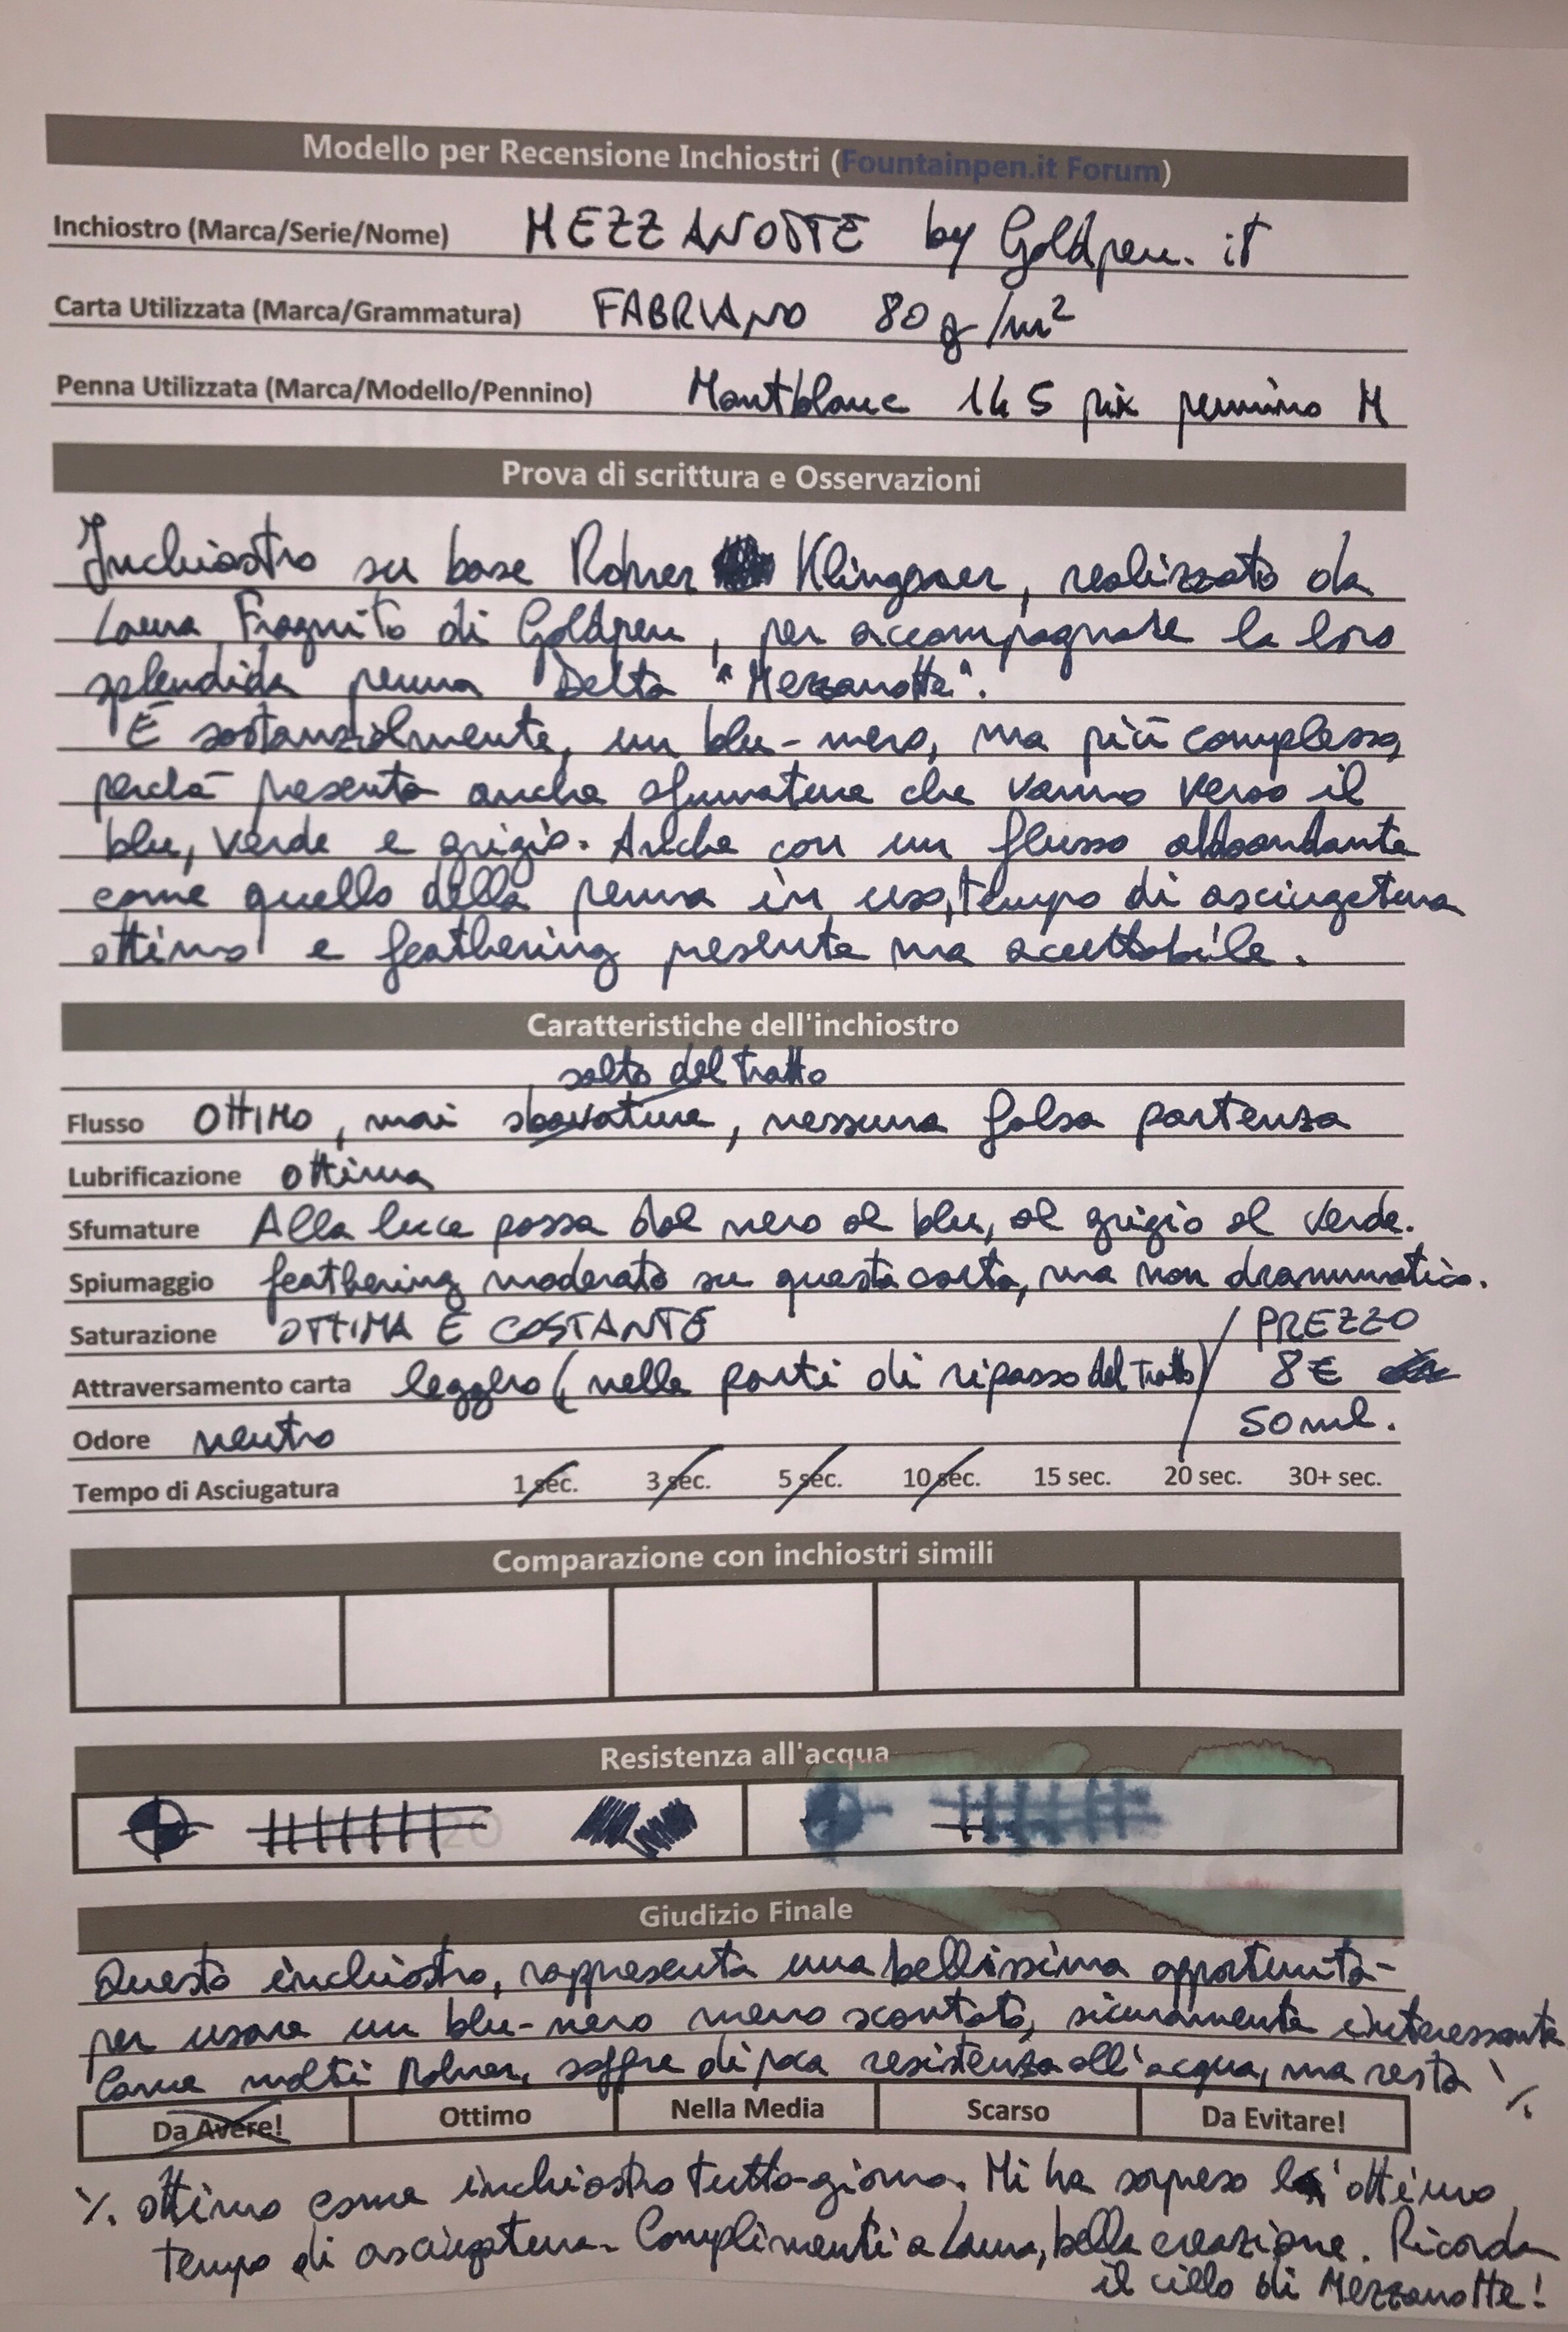 Modello per Recensione Inchiostri (Fountainpen.it Forum)
Inchiostro (Marca/Serie/Nome) MEZZANOTTE by Goldpen.it
Carta Utilizzata (Marca/Grammatura) FABRIANO 80 g/m²
Penna Utilizzata (Marca/Modello/Pennino) Montblanc 145 pix pennino M
Prova di scrittura e Osservazioni
Inchiostro su base Rohrer Klingner, realizzato da
Laura Fragnito di Goldpen, per accompagnare la loro
splendida penna Delta "Mezzanotte".
È sostanzialmente, un blu-nero, ma più complesso,
perchè presenta anche sfumature che vanno verso il
blu, verde e grigio. Anche con un flusso abbondante
come quello della penna in uso, tempo di asciugatura
ottimo e feathering presente ma accettabile.
Caratteristiche dell'inchiostro
salto del tratto
Flusso OTTIMO, mai sbavature, nessuna falsa partenza
Lubrificazione ottima
Sfumature Alla luce passa dal nero al blu, al grigio al verde.
Spiumaggio feathering moderato su questa carta, ma non drammatico.
Saturazione OTTIMA E COSTANTE / PREZZO
Attraversamento carta leggero (nelle parti di ripasso del tratto) 8€
Odore neutro 50 ml.
Tempo di Asciugatura 1 sec. 3 sec. 5 sec. 10 sec. 15 sec. 20 sec. 30+ sec.
Comparazione con inchiostri simili
Resistenza all'acqua
Giudizio Finale
Questo inchiostro, rappresenta una bellissima opportunità
per usare un blu-nero meno scontato, sicuramente interessante
Come molti Rohrer, soffre di poca resistenza all'acqua, ma resta ٪.
Da Avere! Ottimo Nella Media Scarso Da Evitare!
٪. ottimo come inchiostro tutto-giorno. Mi ha sorpreso l'ottimo
tempo di asciugatura. Complimenti a Laura, bella creazione. Ricorda
il cielo di Mezzanotte!